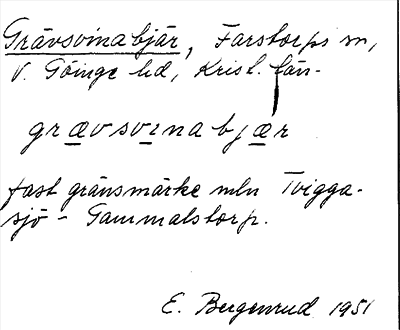 Grävsvinabjär, Farstorps sn,
V. Göinge hd, Krist. län.
grævsvinabjær
fast gränsmärke mln Tvigga-
sjö - Gammalstorp.
E. Bergenrud 1951